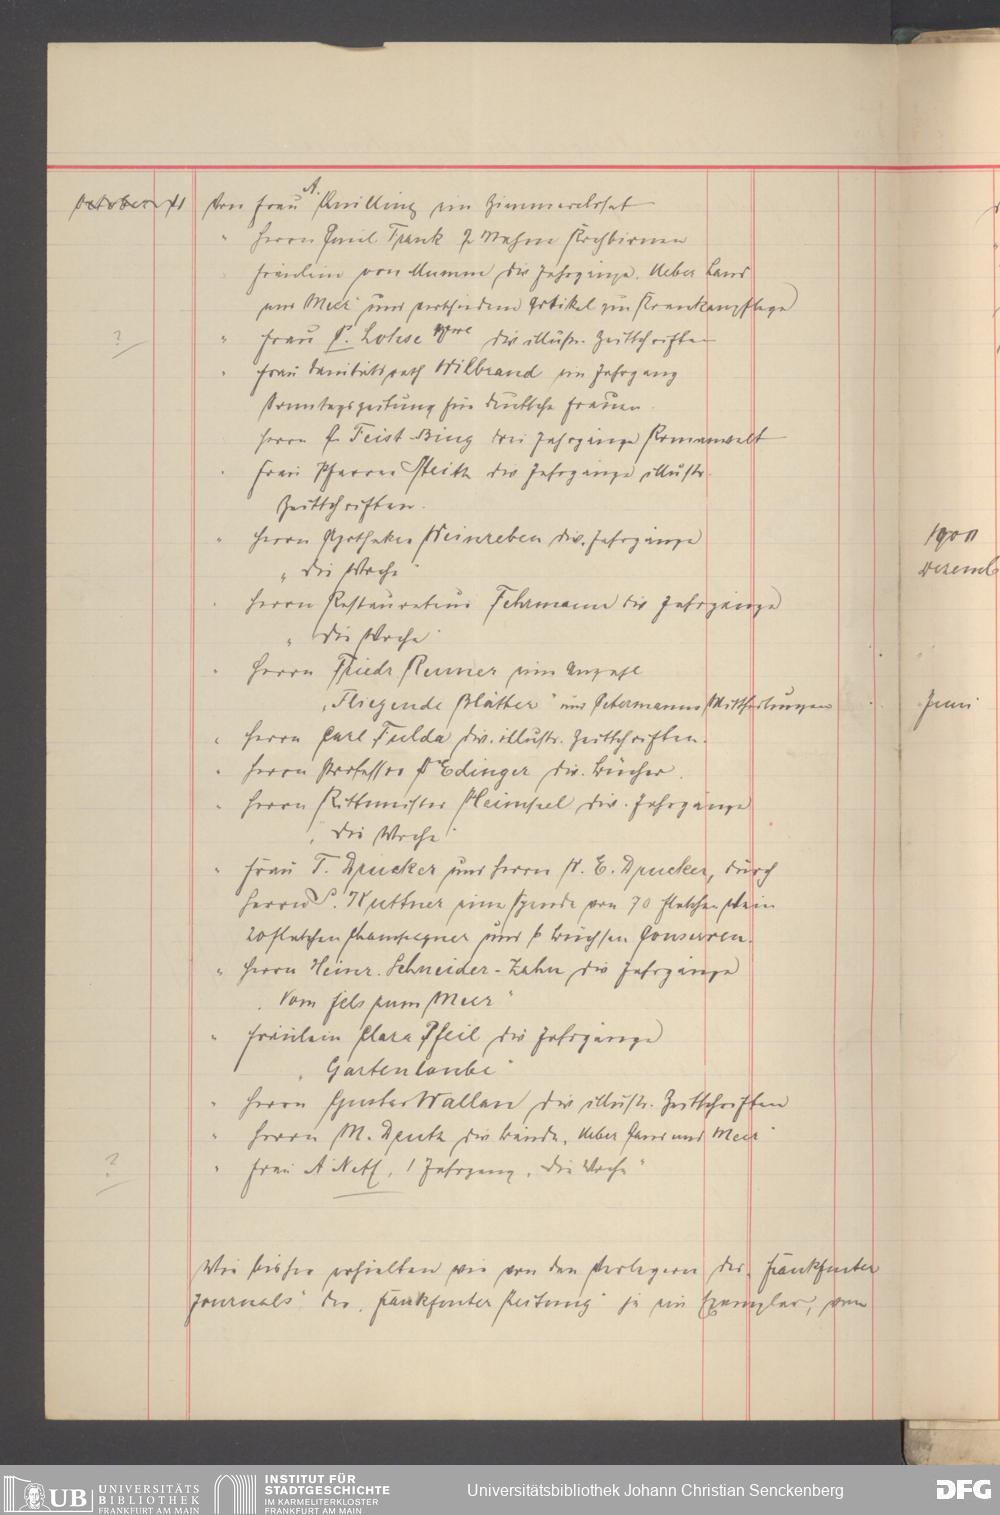 October 31 Von Frau A. Knilling ein Zimmercloset
" Herrn Emil Frank 2 Mahne Kochbirnen
Fräulein von Mumm div Jahrgänge „Ueber Land
und Meer" und verschiedene Artikel zur Krankenpflege
? " Frau P. Lohse Wwe div illustr. Zeitschriften
" Frau Sanitätsrath Wilbrand ein Jahrgang
Sonntagszeitung für deutsche Frauen.
Herrn Feist-Bing drei Jahrgänge Romanwelt
" Frau Pfarrer Steitz div Jahrgänge illustr.
Zeitschriften.
" Herrn Apotheker Weinreben div. Jahrgänge
„Die Woche"
" Herrn Restaurateur Fehrmann div Jahrgänge
„Die Woche"
" Herrn Friedr Renner eine Anzahl
„Fliegende Blätter" und Petermanns Mittheilungen
" Herrn Carl Fulda div. illustr. Zeitschriften.
" Herrn Professor Dr Edinger div. Bücher.
" Herrn Rittmeister Heimpel div. Jahrgänge
„Die Woche"
" Frau T. Drucker und Herrn E. Drucker, durch
Herrn S. Kuttner eine Spende von 70 Flaschen Wein
20 Flaschen Champagner und Büchsen Conserven.
" Herrn Heinr. Schneider-Zahn div Jahrgänge
„Vom Fels zum Meer"
" Fräulein Clara Pfeil div Jahrgänge
„Gartenlaube"
" Herrn Gustav Wallau div illustr. Zeitschriften
" Herrn M. Deutz div Bände „Ueber Land und Meer"
? " Frau A Neth, 1 Jahrgang „Die Woche"
Wie bisher erhielten wir von den Verlegern des „Frankfurter
Journals" der „Frankfurter Zeitung" je ein Exemplar, vom
1900
Dezemb
Juni
UB UNIVERSITÄTS
BIBLIOTHEK
FRANKFURT AM MAIN
INSTITUT FÜR
STADTGESCHICHTE
IM KARMELITERKLOSTER
FRANKFURT AM MAIN
Universitätsbibliothek Johann Christian Senckenberg
DFG